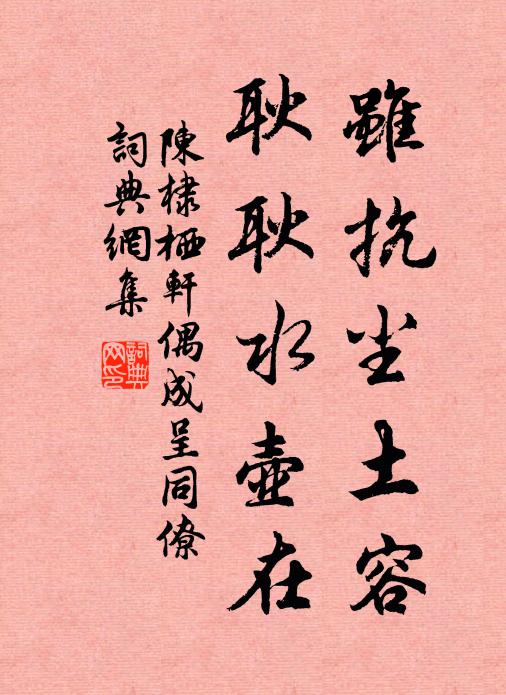 雖抗尘土容
耿耿水壺在
陳棣栖軒偶成呈同僚
詞典網集
詞典网印